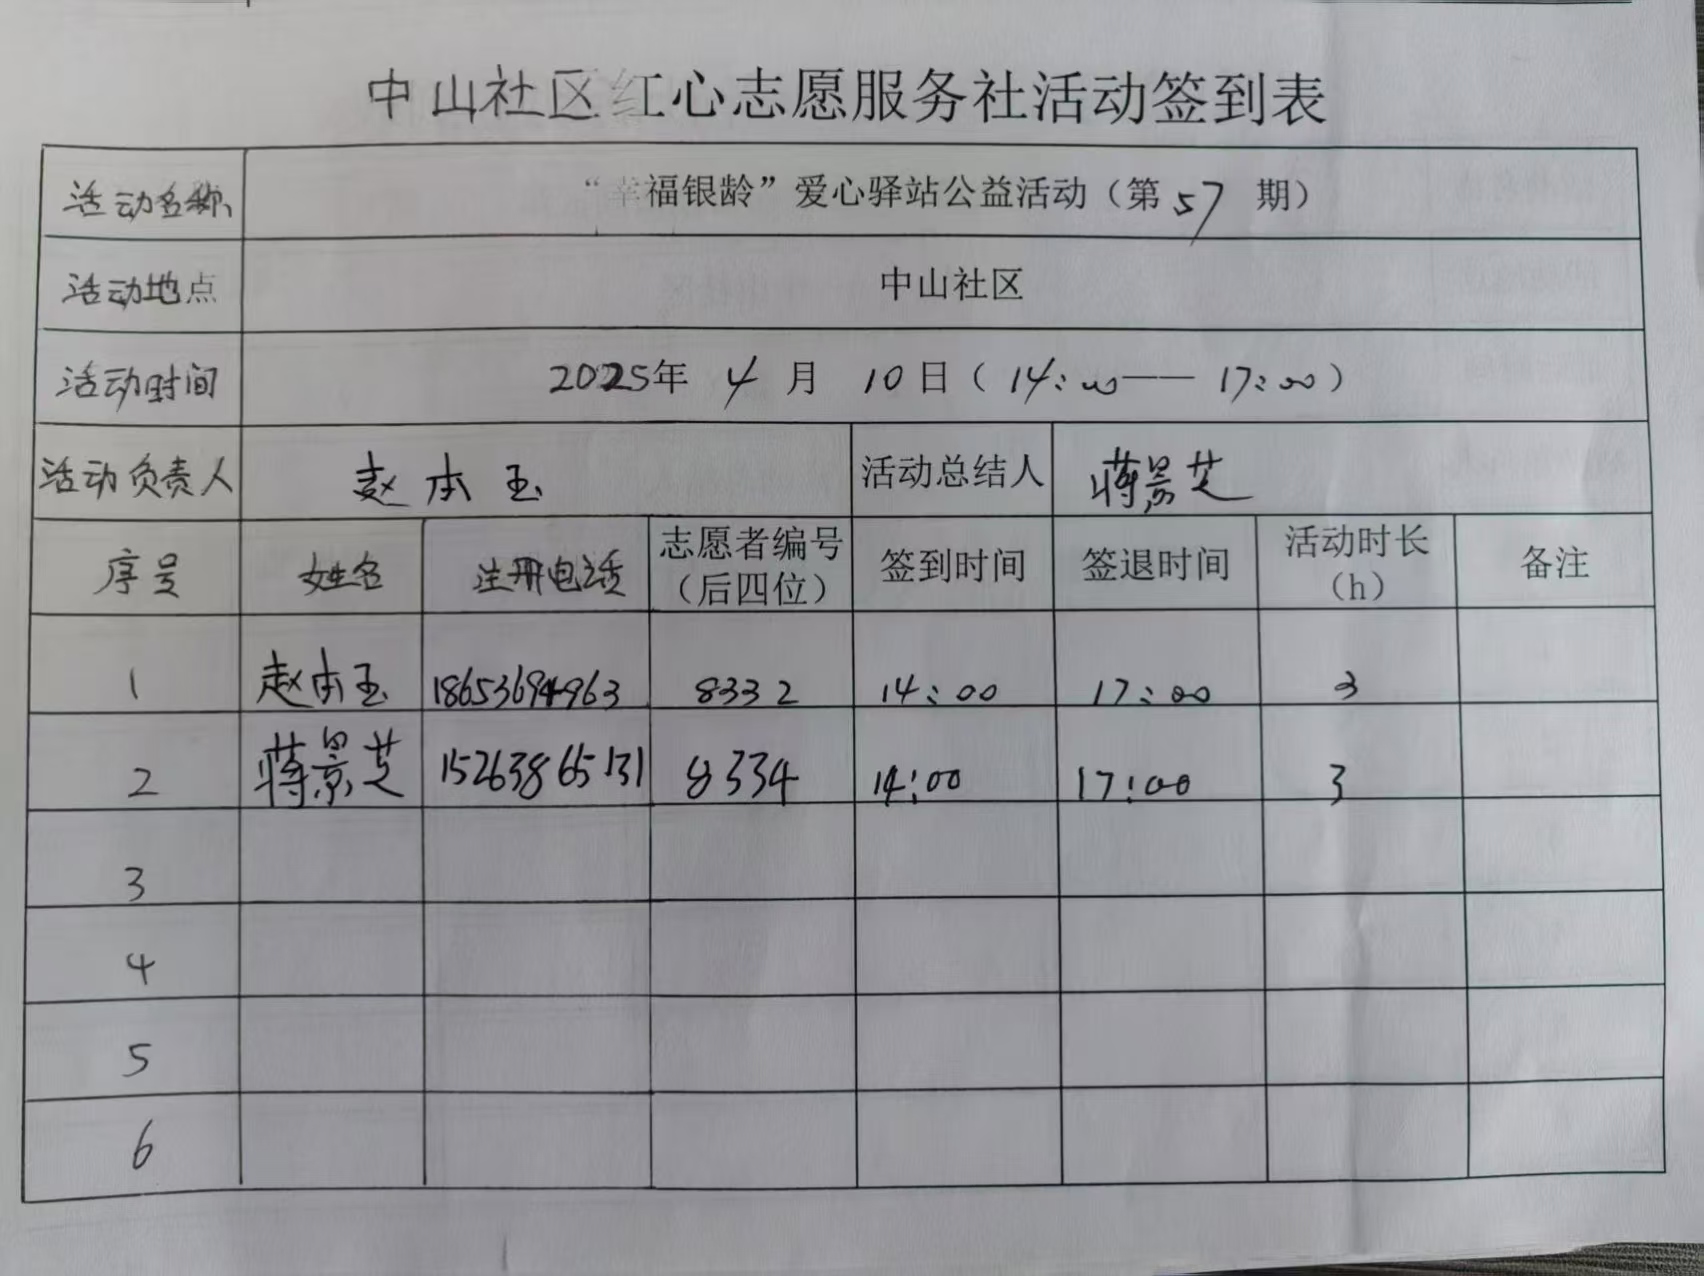 中山社区红心志愿服务社活动签到表
活动名称 “幸福银龄”爱心驿站公益活动（第57期）
活动地点 中山社区
活动时间 2025年4月10日（14:00——17:00）
活动负责人 赵本玉 活动总结人 蒋景芝
序号 姓名 注册电话 志愿者编号（后四位） 签到时间 签退时间 活动时长（h） 备注
1 赵本玉 18653694963 8332 14:00 17:00 3
2 蒋景芝 15263865131 8334 14:00 17:00 3
3
4
5
6